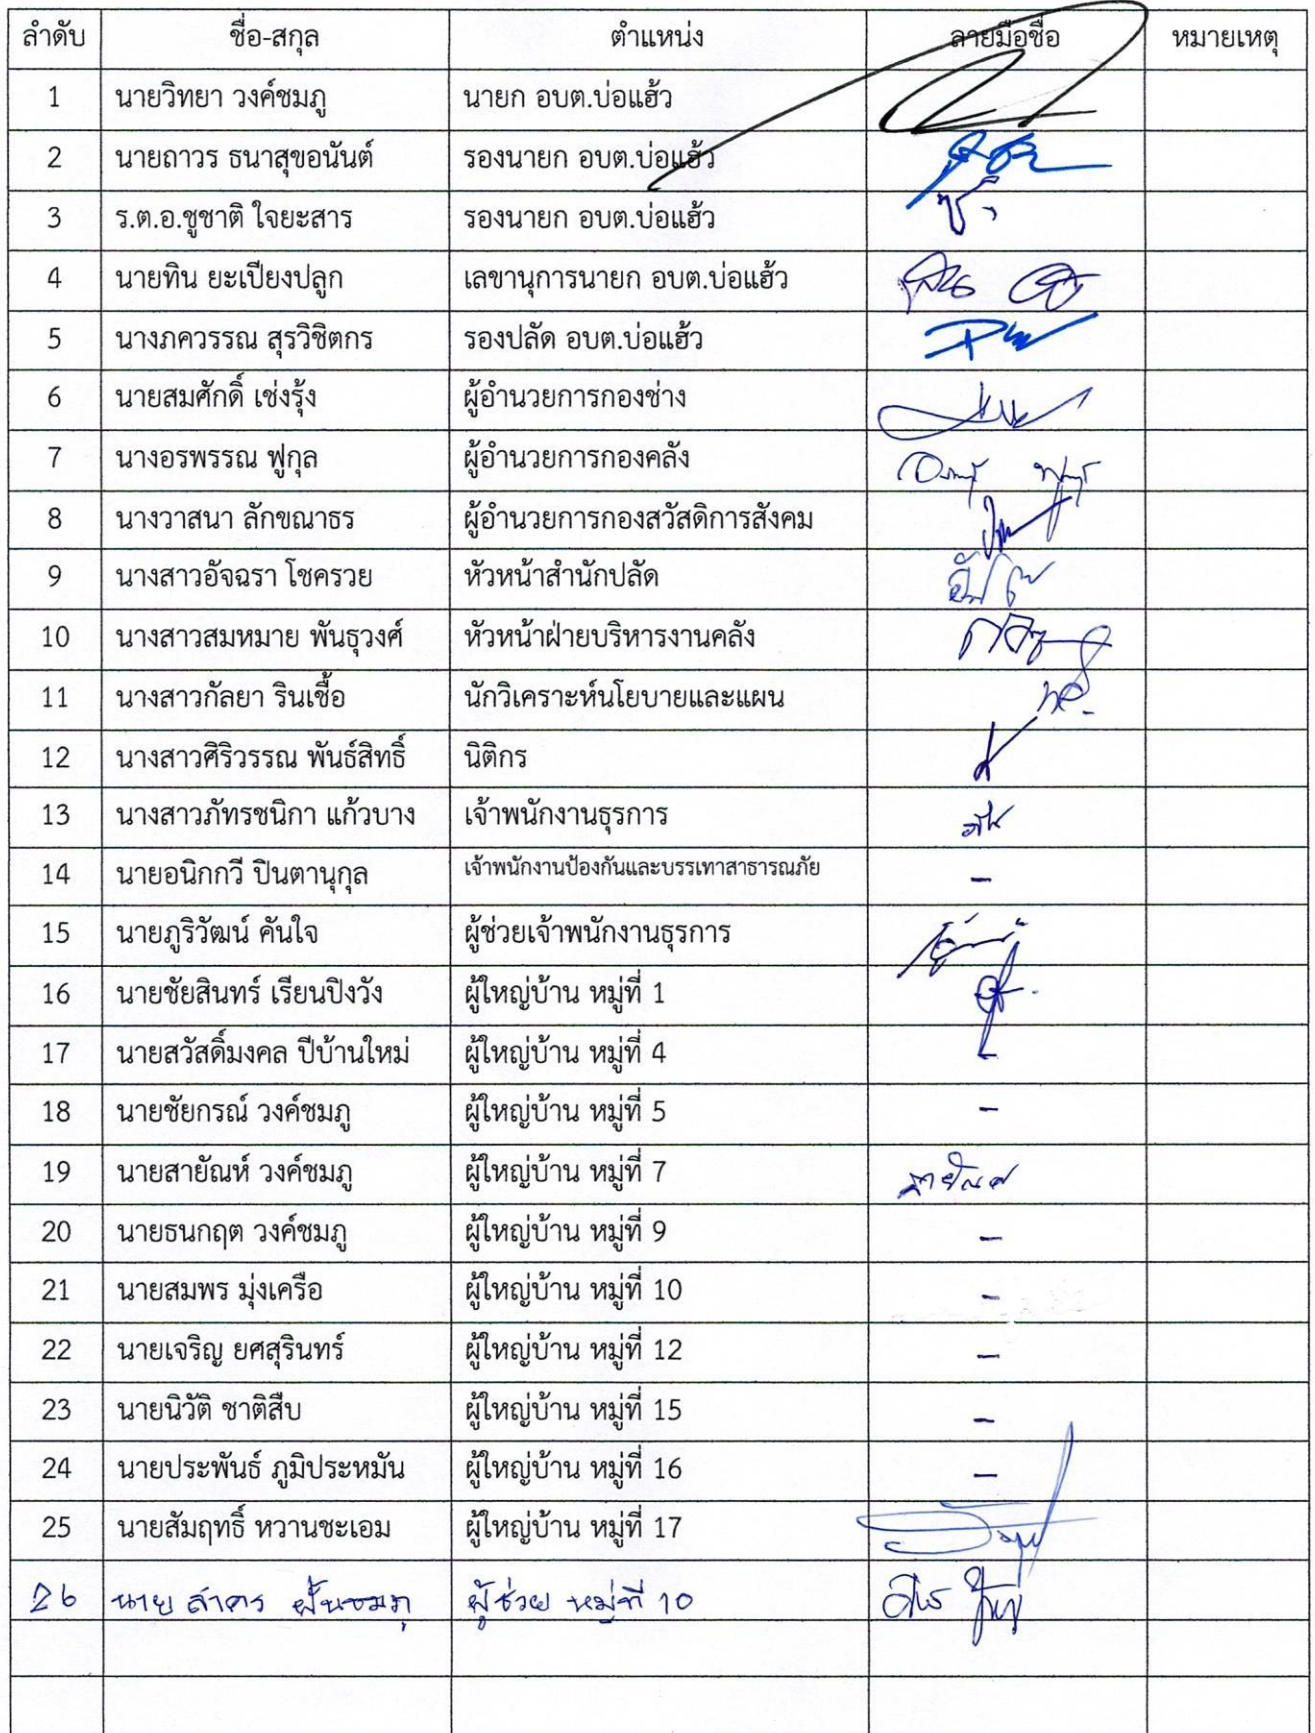 ลำดับ ชื่อ-สกุล ตำแหน่ง ลายมือชื่อ หมายเหตุ
1 นายวิทยา วงค์ชมภู นายก อบต.บ่อแฮ้ว
2 นายถาวร ธนาสุขอนันต์ รองนายก อบต.บ่อแฮ้ว
3 ร.ต.อ.ชูชาติ ใจยะสาร รองนายก อบต.บ่อแฮ้ว
4 นายทิน ยะเปียงปลูก เลขานุการนายก อบต.บ่อแฮ้ว
5 นางภควรรณ สุรวิชิตกร รองปลัด อบต.บ่อแฮ้ว
6 นายสมศักดิ์ เช่งรุ้ง ผู้อำนวยการกองช่าง
7 นางอรพรรณ ฟูกุล ผู้อำนวยการกองคลัง
8 นางวาสนา ลักขณาธร ผู้อำนวยการกองสวัสดิการสังคม
9 นางสาวอัจฉรา โชครวย หัวหน้าสำนักปลัด
10 นางสาวสมหมาย พันธุวงศ์ หัวหน้าฝ่ายบริหารงานคลัง
11 นางสาวกัลยา รินเชื้อ นักวิเคราะห์นโยบายและแผน
12 นางสาวศิริวรรณ พันธ์สิทธิ์ นิติกร
13 นางสาวภัทรชนิกา แก้วบาง เจ้าพนักงานธุรการ
14 นายอนิกกวี ปินตานุกุล เจ้าพนักงานป้องกันและบรรเทาสาธารณภัย -
15 นายภูริวัฒน์ คันใจ ผู้ช่วยเจ้าพนักงานธุรการ
16 นายชัยสินทร์ เรียนปิงวัง ผู้ใหญ่บ้าน หมู่ที่ 1
17 นายสวัสดิ์มงคล ปีบ้านใหม่ ผู้ใหญ่บ้าน หมู่ที่ 4
18 นายชัยกรณ์ วงค์ชมภู ผู้ใหญ่บ้าน หมู่ที่ 5 -
19 นายสายัณห์ วงค์ชมภู ผู้ใหญ่บ้าน หมู่ที่ 7 สายัณห์
20 นายธนกฤต วงค์ชมภู ผู้ใหญ่บ้าน หมู่ที่ 9 -
21 นายสมพร มุ่งเครือ ผู้ใหญ่บ้าน หมู่ที่ 10 -
22 นายเจริญ ยศสุรินทร์ ผู้ใหญ่บ้าน หมู่ที่ 12 -
23 นายนิวัติ ชาติสืบ ผู้ใหญ่บ้าน หมู่ที่ 15 -
24 นายประพันธ์ ภูมิประหมัน ผู้ใหญ่บ้าน หมู่ที่ 16 -
25 นายสัมฤทธิ์ หวานชะเอม ผู้ใหญ่บ้าน หมู่ที่ 17
26 นาย ผู้ช่วย หมู่ที่ 10